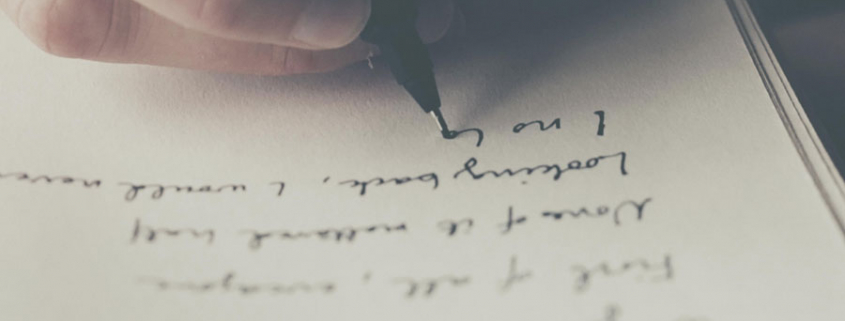 First of all, everyone
None of it mattered half
Looking back, I would never
I no lo